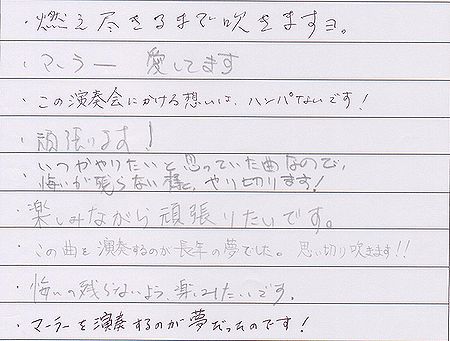 ・燃え尽きるまで吹きますヨ。
・マーラー 愛してます
・この演奏会にかける想いは、ハンパないです！
・頑張ります！
・いつかやりたいと思っていた曲なので、
悔いが残らない様、やり切ります！
・楽しみながら頑張りたいです。
・この曲を演奏するのが長年の夢でした。思い切り吹きます!!
・悔いの残らないよう、楽しみたいです。
・マーラーを演奏するのが夢だったのです！